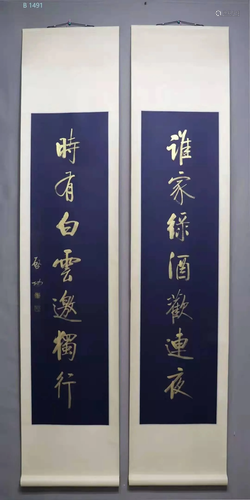 B 1491
誰家綠酒歡連夜
時有白雲邀獨行
啟功